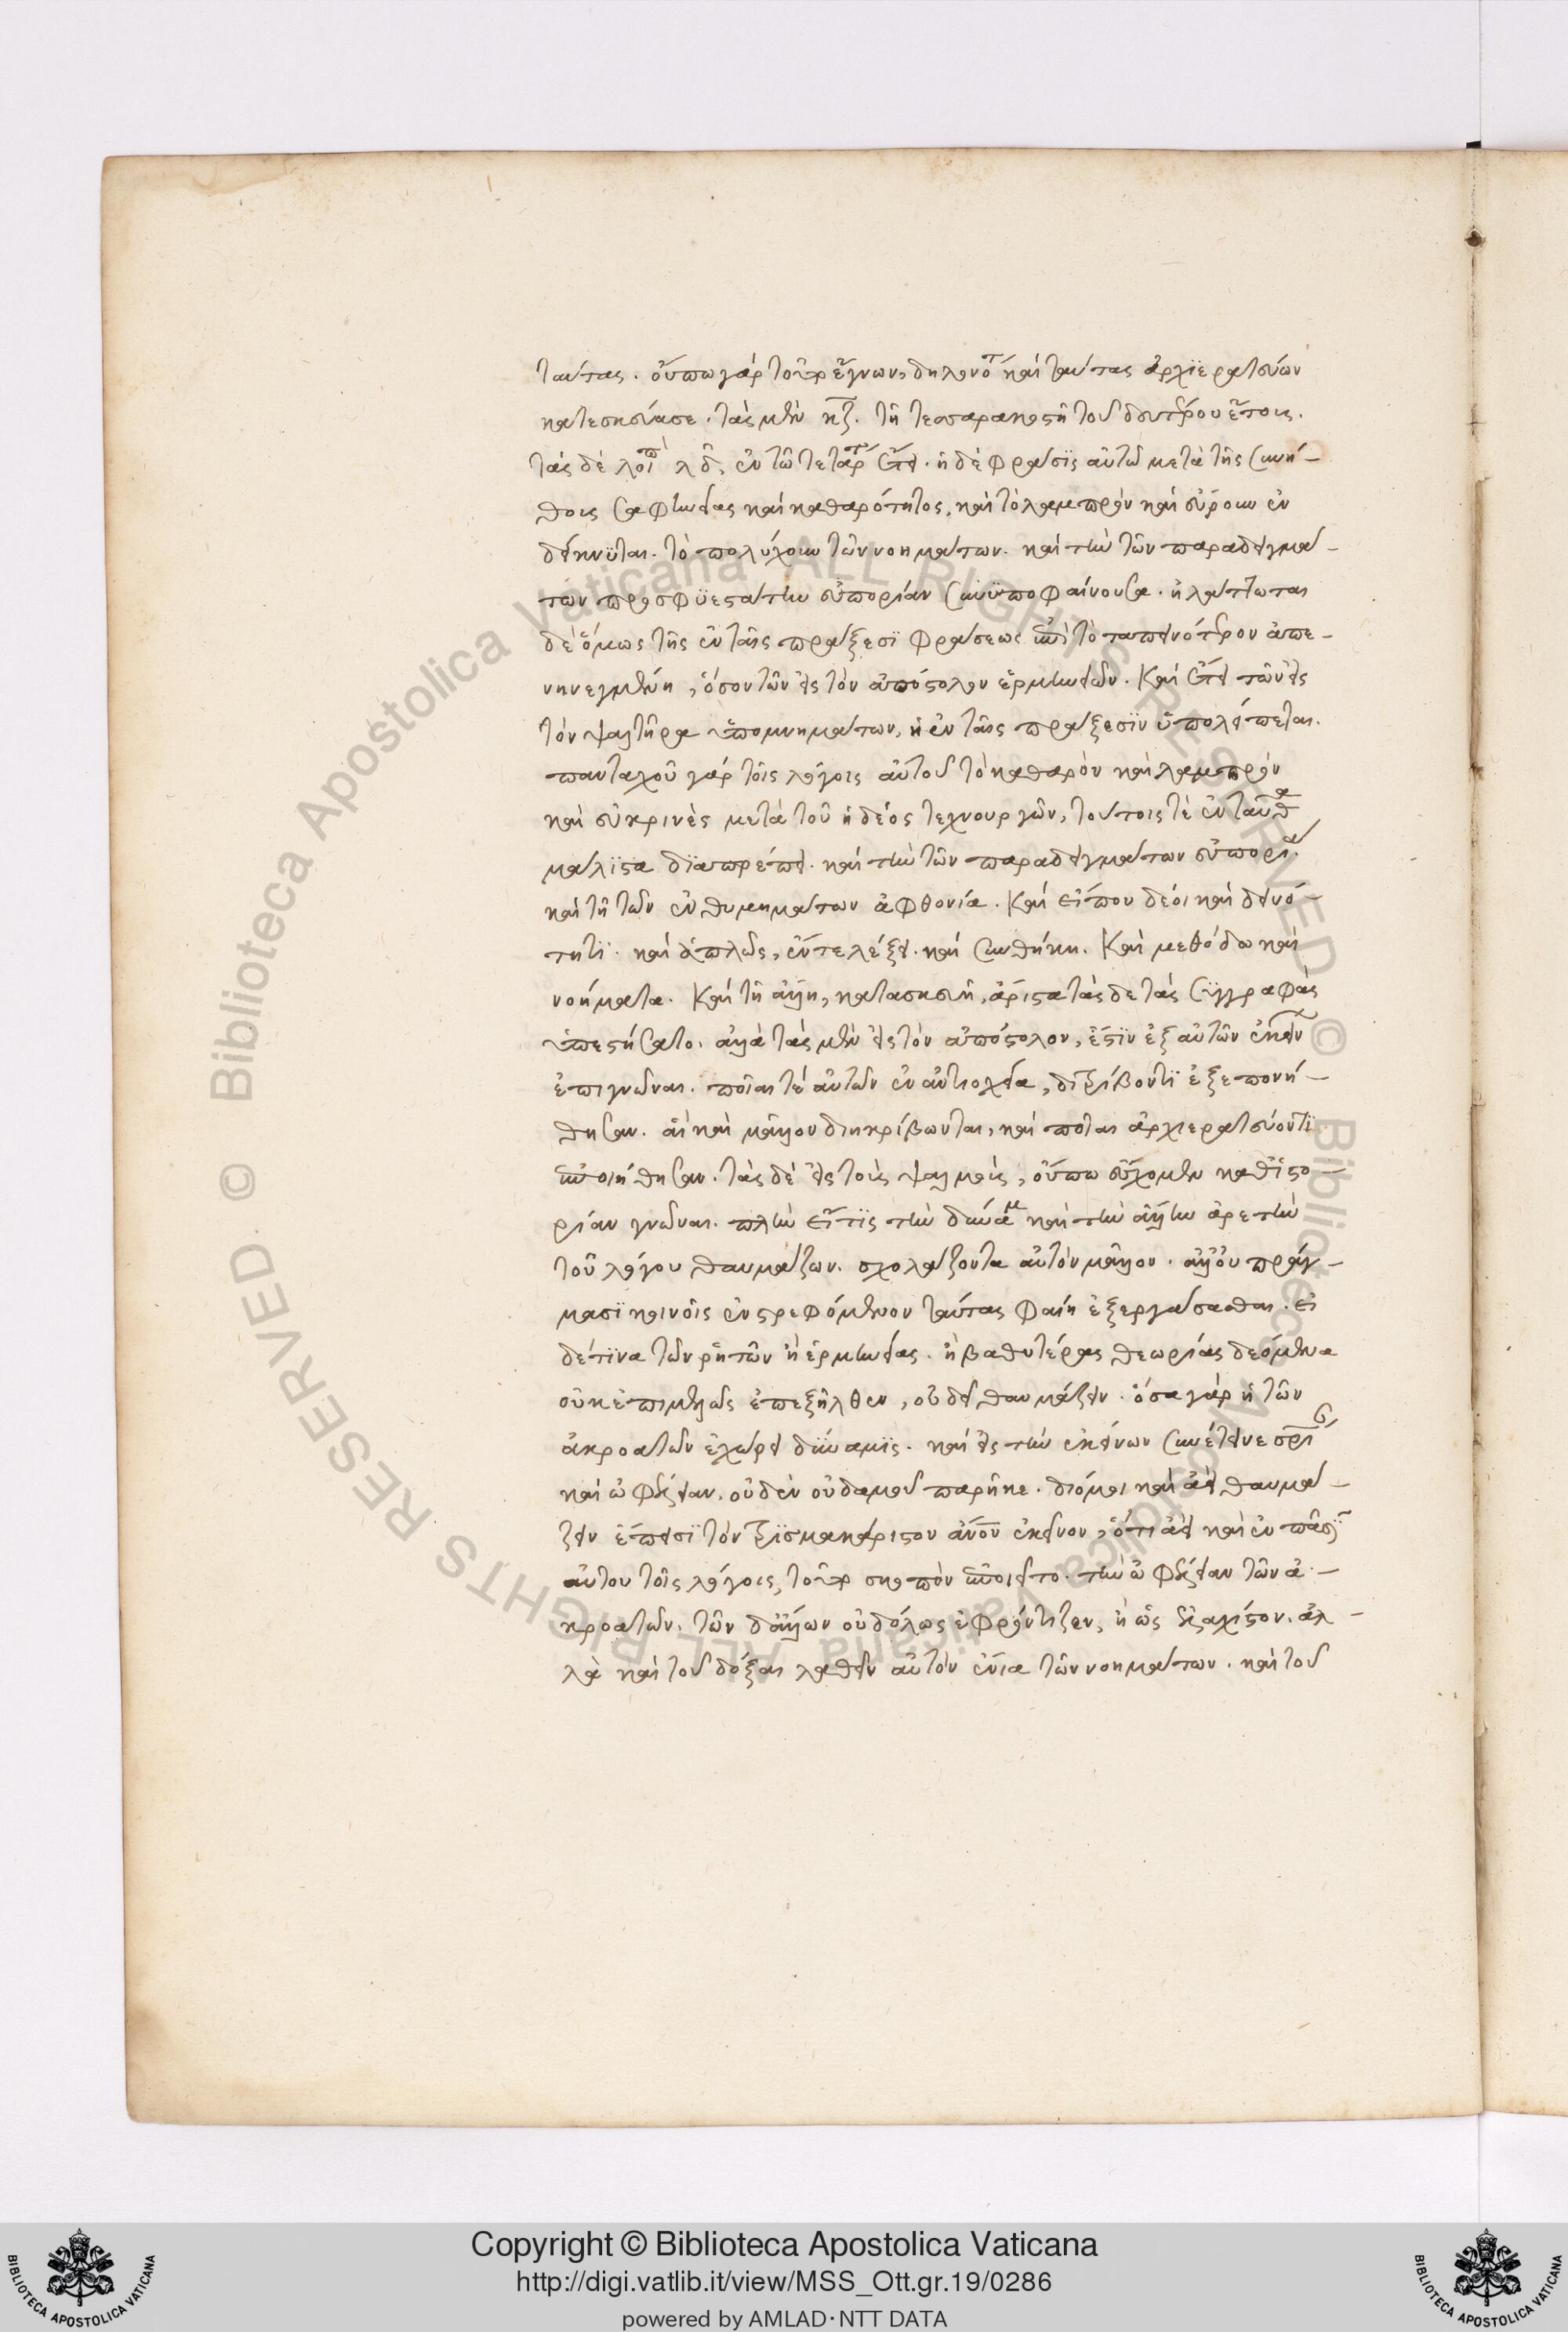 ταύτας. οὔπω γὰρ τοῦτο ἔγνων, δηλονότι καὶ ταύτας ἀρχϊερατεύων
κατεσκεύασε. τὰς μὲν κζ. τῇ τεσσαρακοστῇ τοῦ δευτέρου ἔτους.
τὰς δὲ λοιπὰς λδ, ἐν τῷ τετάρτῳ ἔτει. ἡ δὲ φράσϊς αὐτῷ μετὰ τῆς συνή-
θους σαφηνείας καὶ καθαρότητος, καὶ τὸ λαμπρὸν καὶ εὔρουν ἐν
δείκνϋται. τὸ πολύχουν τῶν νοημάτων. καὶ τὴν τῶν παραδειγμά-
των προσφϋεστάτην εὐπορίαν συνϋποφαίνουσα. ἠλάττωται
δὲ ὅμως τῆς ἐν ταῖς πράξεσϊ φράσεως ἐπὶ τὸ ταπεινότερον ἀπε-
νηνεγμένη, ὅσον τῶν εἰς τὸν ἀπόστολον ἑρμηνειῶν. Καὶ ἔτι τῶν εἰς
τὸν ψαλτῆρα ὑπομνημάτων, ἡ ἐν ταῖς πράξεσϊν ὑπολείπεται.
πανταχοῦ γὰρ τοῖς λόγοις αὐτοῦ τὸ καθαρὸν καὶ λαμπρὸν
καὶ εὐκρινὲς μετὰ τοῦ ἡδέος τεχνουργῶν, τούτοις τὲ ἐνταῦθα
μάλϊστα δϊαπρέπει. καὶ τὴν τῶν παραδειγμάτων εὐπορία.
καὶ τῇ τῶν ἐνθυμημάτων ἀφθονία. Καὶ εἴπου δέοι καὶ δεινό-
τητϊ. καὶ ἁπλῶς, ἔντε λέξει. καὶ συνθήκη. Καὶ μεθόδω καὶ
νοήματα. Καὶ τῇ ἄλλη, κατασκευῇ, ἄριστα τὰς δε τὰς συγγραφὰς
ὑπεστήσατο. ἀλλὰ τὰς μὲν εἰς τὸν ἀπόστολον, ἔστϊν ἐξ αὐτῶν ἐκείνων
ἐπιγνῶναι. ποῖαι τέ αὐτῶν ἐν ἀντιοχεία, διατρίβοντϊ ἐξεπονή-
θησαν. αἳ καὶ μᾶλλον διηκρίβωνται, καὶ ποῖαι ἀρχιερατεύοντϊ
ἐποιήθησαν. τὰς δὲ εἰς τοὺς ψαλμοὺς, οὔπω εὔχομεν καθϊστο-
ρίαν γνῶναι. πλὴν εἴτϊς τὴν δύναμιν καὶ τὴν ἄλλην ἀρετὴν
τοῦ λόγου θαυμάζων. σχολάζοντα αὐτὸν μᾶλλον. ἀλλ' οὐ πράγ-
μασϊ κοινοῖς ἐνστρεφόμενον ταύτας φαίη ἐξεργάσασθαι. εἰ
δέ τϊνα τῶν ῥητῶν ἢ ἑρμηνείας. ἢ βαθυτέρας θεωρίας δεόμενα
οὐκ ἐπιμελῶς ἐπεξῆλθεν, οὐ δεῖ θαυμάζειν. ὅσα γὰρ ἡ τῶν
ἀκροατῶν ἐχώρει δύναμϊς. καὶ εἰς τὴν ἐκείνων συνέτεινε σωτηρίαν
καὶ ὠφέλειαν, οὐδὲν οὐδαμοῦ παρῆκε. διόμοι καὶ ἀεὶ θαυμά-
ζειν ἔπεισϊ τὸν τρϊσμακάριστον ἄνθρωπον ἐκεῖνον, ὅτι ἀεὶ καὶ ἐν πᾶσϊ
αὐτου τοῖς λόγοις, τοῦτο σκοπὸν ἐποιεῖτο. τὴν ὠφέλειαν τῶν ἀ-
κροατῶν. τῶν δ' ἄλλων οὐδόλως ἐφρόντιζεν, ἢ ὡς ἐλάχιστον. ἀλ-
λὰ καὶ τοῦ δόξαι λαθεῖν αὐτὸν ἔνια τῶν νοημάτων. καὶ τοῦ